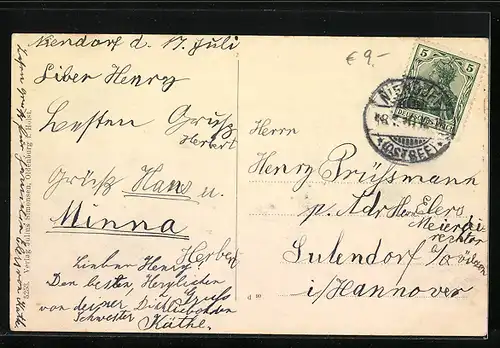 Niendorf d. 17. Juli
Liber Henry
Besten Gruß
Herbert
Grüß Hans u.
Minna
Herbert
Lieber Henry!
Den besten, Herzlichen Gruß
von deiner Dich liebenden
Schwester Käthe.
Verlag Julius Simonsen, Oldenburg i. Holst.
€ 9,-
5 5
DEUTSCHES REICH
NIENDORF
(OSTSEE)
Herrn
Henry Prüßmann
p. Adr Herrn Elers
Meierei
Sulendorf
i/Hannover